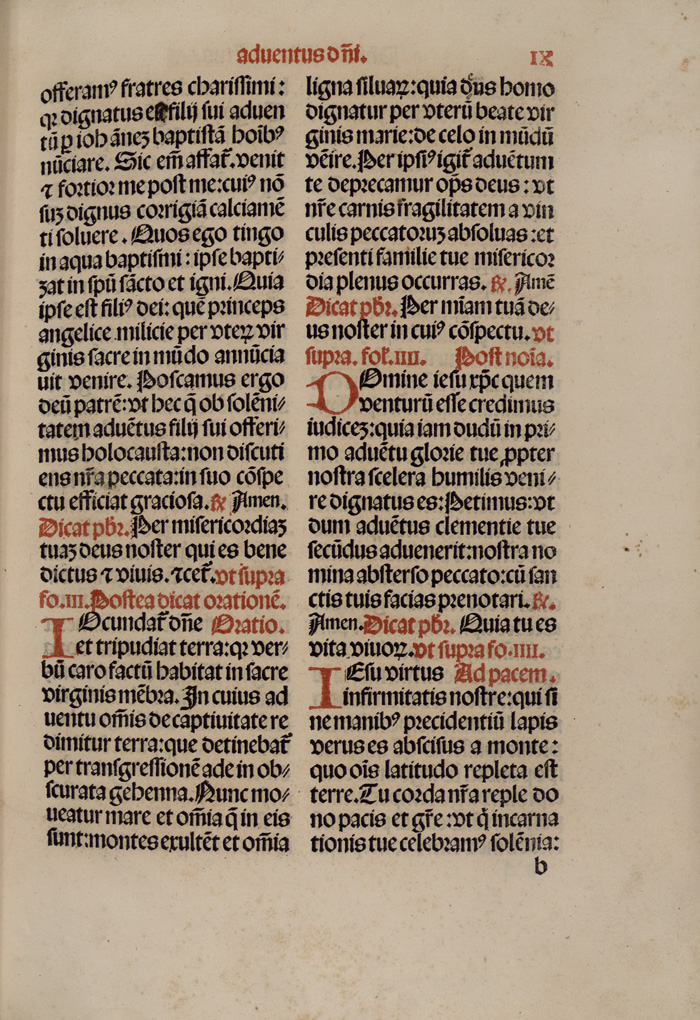 aduentus dñi.
IX
offeramꝰ fratres charissimi:
qꝛ dignatus est filij sui aduen
tū ꝑ iohãneꝫ baptistã hoĩbꝰ
nũciare. Sic em̃ affat̃. venit
⁊ fortior me post me: cuiꝰ nõ
suꝫ dignus corrigiã calciamẽ
ti soluere. Quos ego tingo
in aqua baptismi: ipse bapti⸗
ȝat in spũ sãcto et igni. Quia
ipse est filiꝰ dei: quẽ princeps
angelice milicie per vteꝝ vir
ginis sacre in mũdo annũcia
uit venire. Poscamus ergo
deũ patrẽ: vt hec q̃ ob solẽni⸗
tatem aduẽtus filij sui offeri⸗
mus holocausta: non discuti
ens nr̃a peccata: in suo cõspe
ctu efficiat graciosa. ℟ Amen.
Dicat pbr̃. Per misericordiaꝫ
tuaꝫ deus noster qui es bene
dictus ⁊ viuis. ⁊cet̃. vt supra
fo. III. Postea dicat orationẽ.
IOcundat̃ dñe Oratio.
et tripudiat terra: qꝛ ver⸗
bũ caro factũ habitat in sacre
virginis mẽbra. In cuius ad
uentu om̃is de captiuitate re
dimitur terra: que detinebat̃
per transgressionẽ ade in ob⸗
scurata gehenna. Nunc mo⸗
ueatur mare et om̃ia q̃ in eis
sunt: montes exultẽt et om̃ia
ligna siluaꝝ: quia dñs homo
dignatur per vterũ beate vir
ginis marie: de celo in mũdũ
vẽire. Per ipsiꝰ igit̃ aduẽtum
te deprecamur op̃s deus: vt
nr̃e carnis fragilitatem a vin
culis peccatoruꝫ absoluas: et
presenti familie tue misericor
dia plenus occurras. ℟. Amẽ
Dicat pbr̃. Per m̃iam tuã de⸗
us noster in cuiꝰ cõspectu. vt
supra. fol. IIII. Post noĩa.
DOmine iesu xp̃e quem
venturũ esse credimus
iudiceꝫ: quia iam dudũ in pri⸗
mo aduẽtu glorie tue ꝓpter
nostra scelera humilis veni⸗
re dignatus es: Petimus: vt
dum aduẽtus clementie tue
secũdus aduenerit: nostra no
mina absterso peccato: cũ san
ctis tuis facias prenotari. ℟.
Amen. Dicat pbr̃. Quia tu es
vita viuoꝝ. vt supra fo. IIII.
IEsu virtus Ad pacem.
infirmitatis nostre: qui si
ne manibꝰ precidentiũ lapis
verus es abscisus a monte:
quo oĩs latitudo repleta est
terre. Tu corda nr̃a reple do
no pacis et gr̃e: vt q̃ incarna
tionis tue celebramꝰ solẽnia:
b